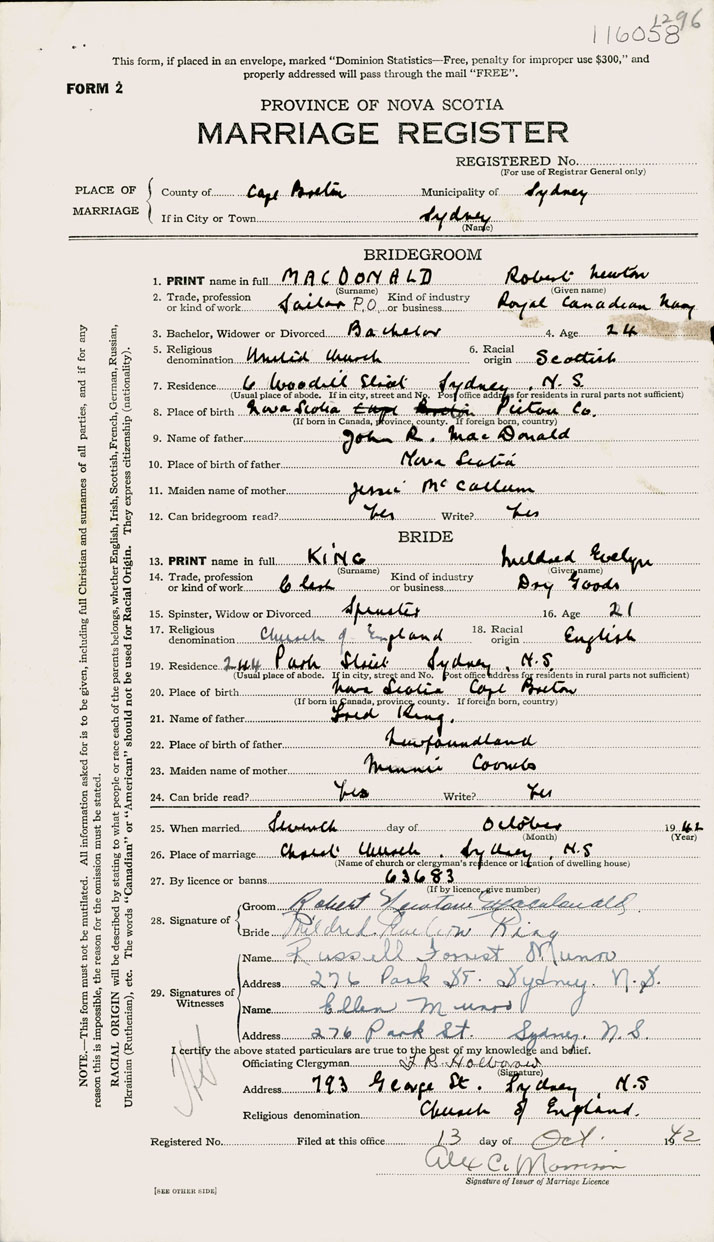 1296
116058
This form, if placed in an envelope, marked "Dominion Statistics—Free, penalty for improper use $300," and
properly addressed will pass through the mail "FREE".
FORM 2
PROVINCE OF NOVA SCOTIA
MARRIAGE REGISTER
REGISTERED No.
(For use of Registrar General only)
PLACE OF MARRIAGE
County of Cape Breton Municipality of Sydney
If in City or Town Sydney
(Name)
BRIDEGROOM
1. PRINT name in full MACDONALD Robert Newton
(Surname) (Given name)
2. Trade, profession or kind of work Sailor P.O. Kind of industry or business Royal Canadian Navy
3. Bachelor, Widower or Divorced Bachelor 4. Age 24
5. Religious denomination United Church 6. Racial origin Scottish
7. Residence 6 Woodill Street Sydney, N.S.
(Usual place of abode. If in city, street and No. Post office address for residents in rural parts not sufficient)
8. Place of birth Nova Scotia Cape Breton Pictou Co.
(If born in Canada, province, county. If foreign born, country)
9. Name of father John R. MacDonald
10. Place of birth of father Nova Scotia
11. Maiden name of mother Jessie McCallum
12. Can bridegroom read? Yes Write? Yes
BRIDE
13. PRINT name in full KING Mildred Evelyn
(Surname) (Given name)
14. Trade, profession or kind of work Clerk Kind of industry or business Dry Goods
15. Spinster, Widow or Divorced Spinster 16. Age 21
17. Religious denomination Church of England 18. Racial origin English
19. Residence 244 Park Street Sydney, N.S.
(Usual place of abode. If in city, street and No. Post office address for residents in rural parts not sufficient)
20. Place of birth Nova Scotia Cape Breton
(If born in Canada, province, county. If foreign born, country)
21. Name of father Fred King.
22. Place of birth of father Newfoundland
23. Maiden name of mother Minnie Coombs
24. Can bride read? Yes Write? Yes
25. When married Seventh day of October 1942
(Month) (Year)
26. Place of marriage Christ Church, Sydney, N.S
(Name of church or clergyman's residence or location of dwelling house)
27. By licence or banns 63683
(If by licence, give number)
28. Signature of
Groom Robert Newton Macdonald
Bride Mildred Evelyn King
29. Signatures of Witnesses
Name Russell Forrest Munro
Address 276 Park St. Sydney. N.S.
Name Ellen Munro
Address 276 Park St. Sydney. N.S.
I certify the above stated particulars are true to the best of my knowledge and belief.
Officiating Clergyman
(Signature)
Address 793 George St. Sydney, N.S
Religious denomination Church of England.
Registered No. Filed at this office 13 day of Oct. 1942
Alex C. Morrison
Signature of Issuer of Marriage Licence
[SEE OTHER SIDE]
NOTE.—This form must not be mutilated. All information asked for is to be given, including full Christian and surnames of all parties, and if for any
reason this is impossible, the reason for the omission must be stated.
RACIAL ORIGIN will be described by stating to what people or race each of the parents belongs, whether English, Irish, Scottish, French, German, Russian,
Ukrainian (Ruthenian), etc. The words "Canadian" or "American" should not be used for Racial Origin. They express citizenship (nationality).